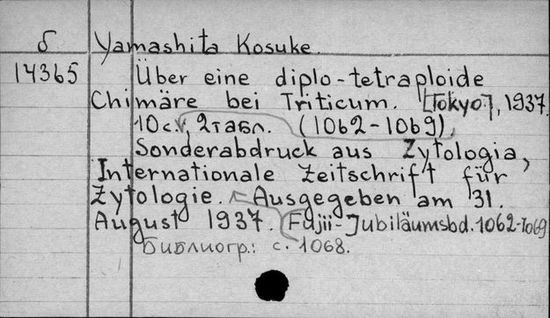 б Yamashita Kosuke.
14365 Über eine diplo-tetraploide
Chimäre bei Triticum. [Tokyo], 1937.
10 с., 2 табл. (1062-1069)
Sonderabdruck aus Zytologia,
Internationale Zeitschrift für
Zytologie. Ausgegeben am 31.
August 1937. Fujii-Jubiläumsbd. 1062-1069
Библиогр.: с. 1068.